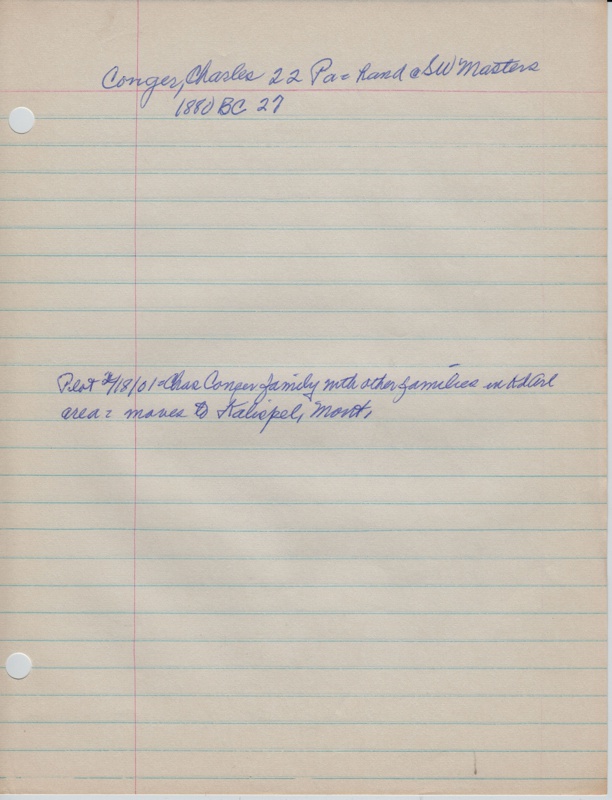 Conger, Charles 22 Pa = hand @ SW Masters
1880 BC 27
/18/01 = Chas Conger family with other families in
area = moves to Kalispel, Mont,